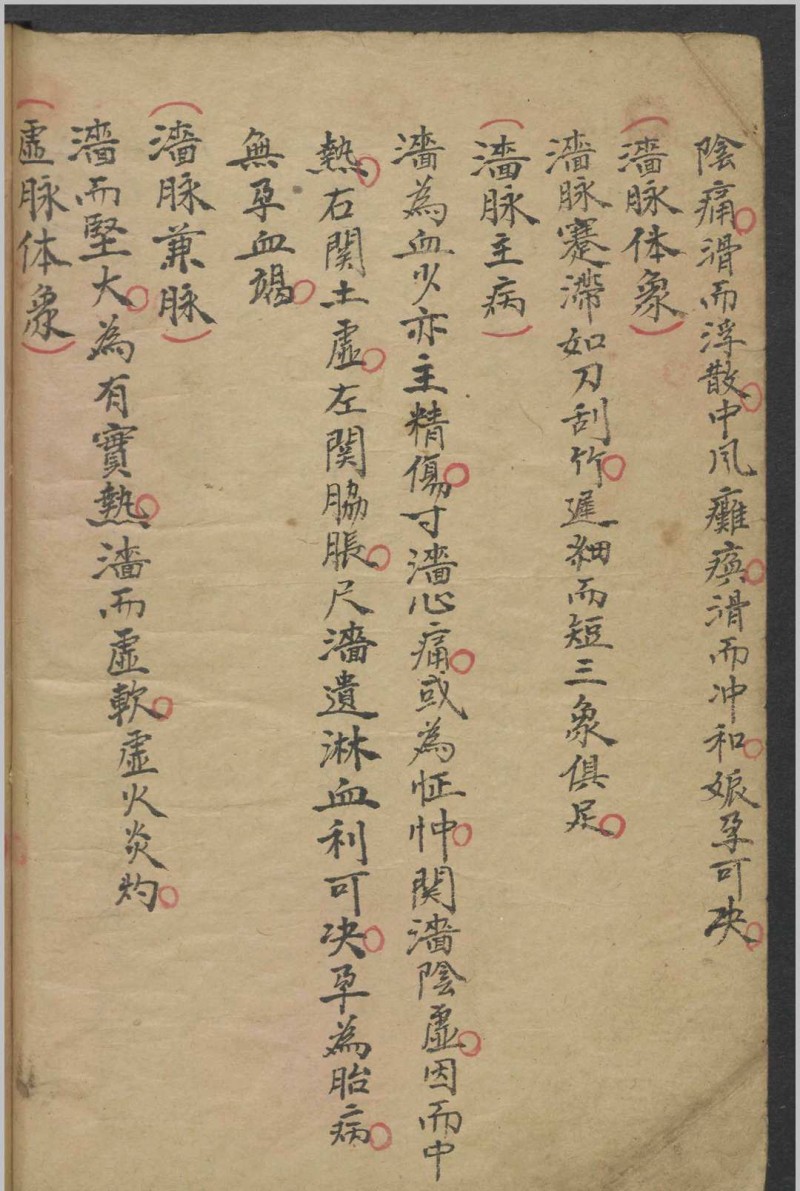 陰痛滑而浮散中风癱瘓滑而冲和娠孕可决
(濇脉体象)
濇脉蹇滯如刀刮竹遲細而短三象俱足
(濇脉主病)
濇為血少亦主精傷寸濇心痛或為怔忡関濇陰虛因而中
熱右関土虛左関脇脹尺濇遺淋血利可决孕為胎病
無孕血竭
(濇脉兼脉)
濇而堅大為有實熱濇而虛軟虛火炎灼
(虛脉体象)